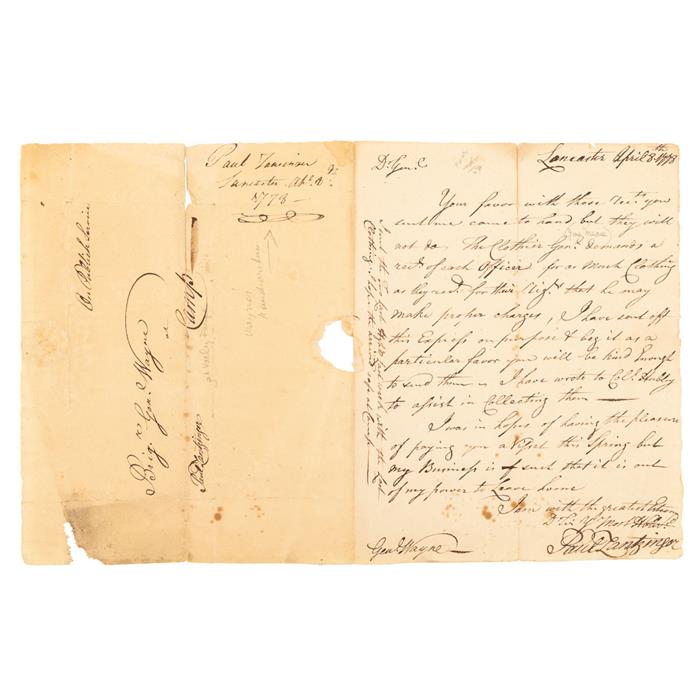 Paul Zantzinger
Lancaster Apl. 8th
1778
Wayne's
handwriting
On Publick Service
Brigr. Genl. Wayne
at
Camp
Paul Zantzinger
Lancaster April 8th 1778
Dr. Genl.
Your favor with those rects. you
sent me came to hand but they will
not do. The Clothier Genl. demands a
rect. of each Officer for as Much Clothing
as they recd. for their Regt. that he may
make proper charges, I have sent off
this Express on purpose & beg it as a
particular favor you will be kind Enough
to send them. I have wrote to Coll. Hubley
to assist in Collecting them —
I was in hopes of having the pleasure
of paying you a Visit this Spring but
my Business is such that it is out
of my power to Leave home
I am with the greatest Esteem
Dr. Sir Yr. Most Hble. St.
Paul Zantzinger
Genl. Wayne —